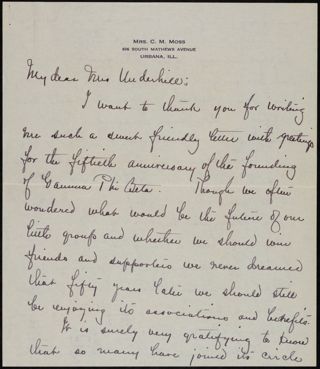 MRS. C. M. MOSS
606 SOUTH MATHEWS AVENUE
URBANA, ILL.
My dear Mrs Underhill:
I want to thank you for writing
me such a sweet friendly letter with greetings
for the fiftieth anniversary of the founding
of Gamma Phi Beta. Though we often
wondered what would be the future of our
little groups and whether we should win
friends and supporters we never dreamed
that fifty years later we should still
be enjoying its associations and benefits.
It is surely very gratifying to know
that so many have joined its circle